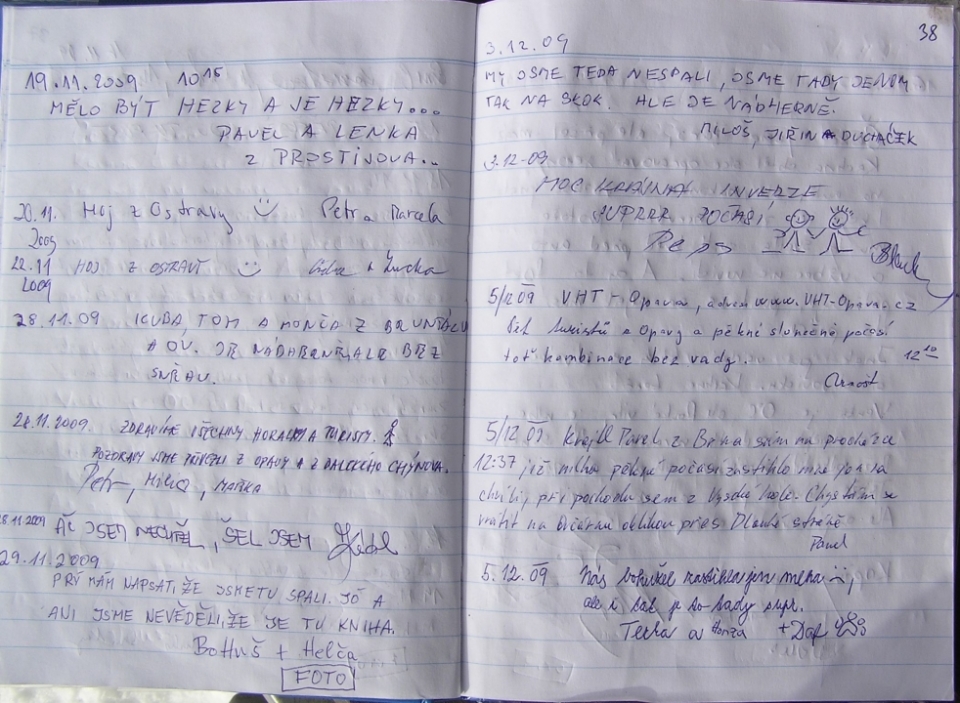 19.11.2009 10¹⁵
MĚLO BÝT HEZKY A JE HEZKY...
PAVEL A LENKA
Z PROSTĚJOVA...
20.11. Hoj z Ostravy Petr a Marcela
2009
22.11 HOJ Z OSTRAVY + Lucka
2009
28.11.09 KUBA, TOM A MONČA Z BRUNTÁLU
A OV. JE NÁDHERNĚ, ALE BEZ
SNĚHU.
28.11.2009. ZDRAVÍME VŠECHNY HORALKY A TURISTY.
POZDRAVY JSME PŘIVEZLI Z OPAVY A Z DALEKÉHO CHÝNOVA.
Petr, MAŘKA
28.11.2009 AČ JSEM NECHTĚL, ŠEL JSEM
29.11.2009
PRÝ MÁM NAPSAT, ŽE JSME TU SPALI. JÓ A
ANI JSME NEVĚDĚLI, ŽE JE TU KNIHA.
BOHUŠ + HELČA
FOTO
38
3.12.09
MY JSME TEDA NESPALI, JSME TADY JENOM
TAK NA SKOK. ALE JE NÁDHERNĚ.
MILOŠ, JIŘINA DUCHÁČEK
3.12-09
MOC KRÁSNÁ INVERZE
SUPRRR POČASÍ
Peps
Black
5/12 09 VHT - Opava, adresa www.VHT-Opava.cz
Pět turistů z Opavy a pěkné slunečné počasí
toť kombinace bez vady. 12¹⁰
Arnošt
5/12 09 Pavel z Brna sám na procházce
12:37 již mlha pěkné počasí zastihlo mne jen na
chvíli, při pochodu sem z Vysoké hole. Chystám se
vrátit na Ovčárnu oblikou přes Dlouhé stráně
Pavel
5.12.09 Nás bohužel zastihla jen mlha,
ale i tak je to tady supr.
a Honza